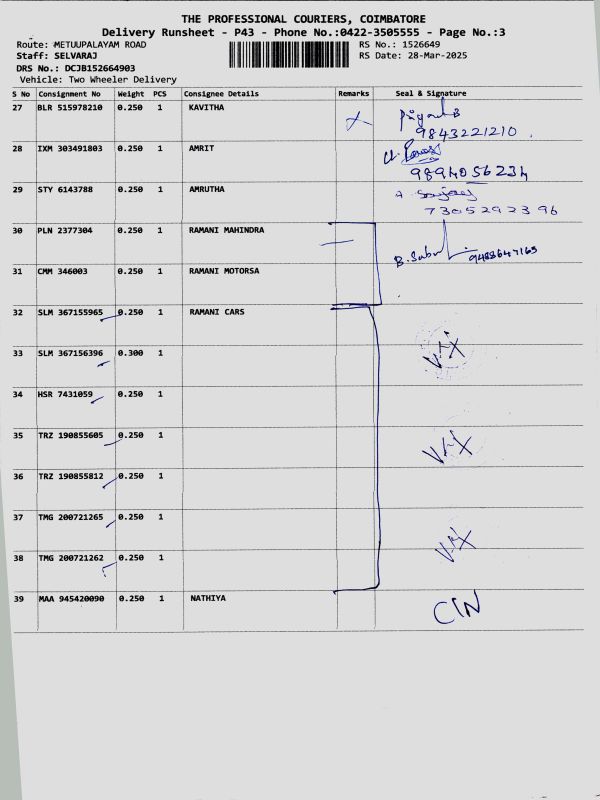 THE PROFESSIONAL COURIERS, COIMBATORE
Delivery Runsheet - P43 - Phone No.:0422-3505555 - Page No.:3
Route: METUUPALAYAM ROAD RS No.: 1526649
Staff: SELVARAJ RS Date: 28-Mar-2025
DRS No.: DCJB152664903
Vehicle: Two Wheeler Delivery
S No Consignment No Weight PCS Consignee Details Remarks Seal & Signature
27 BLR 515978210 0.250 1 KAVITHA
9843221210
28 IXM 303491803 0.250 1 AMRIT
9894056234
29 STY 6143788 0.250 1 AMRUTHA
7305292396
30 PLN 2377304 0.250 1 RAMANI MAHINDRA
31 CMM 346003 0.250 1 RAMANI MOTORSA
32 SLM 367155965 0.250 1 RAMANI CARS
33 SLM 367156396 0.300 1
34 HSR 7431059 0.250 1
35 TRZ 190855605 0.250 1
36 TRZ 190855812 0.250 1
37 TMG 200721265 0.250 1
38 TMG 200721262 0.250 1
39 MAA 945420090 0.250 1 NATHIYA CIN